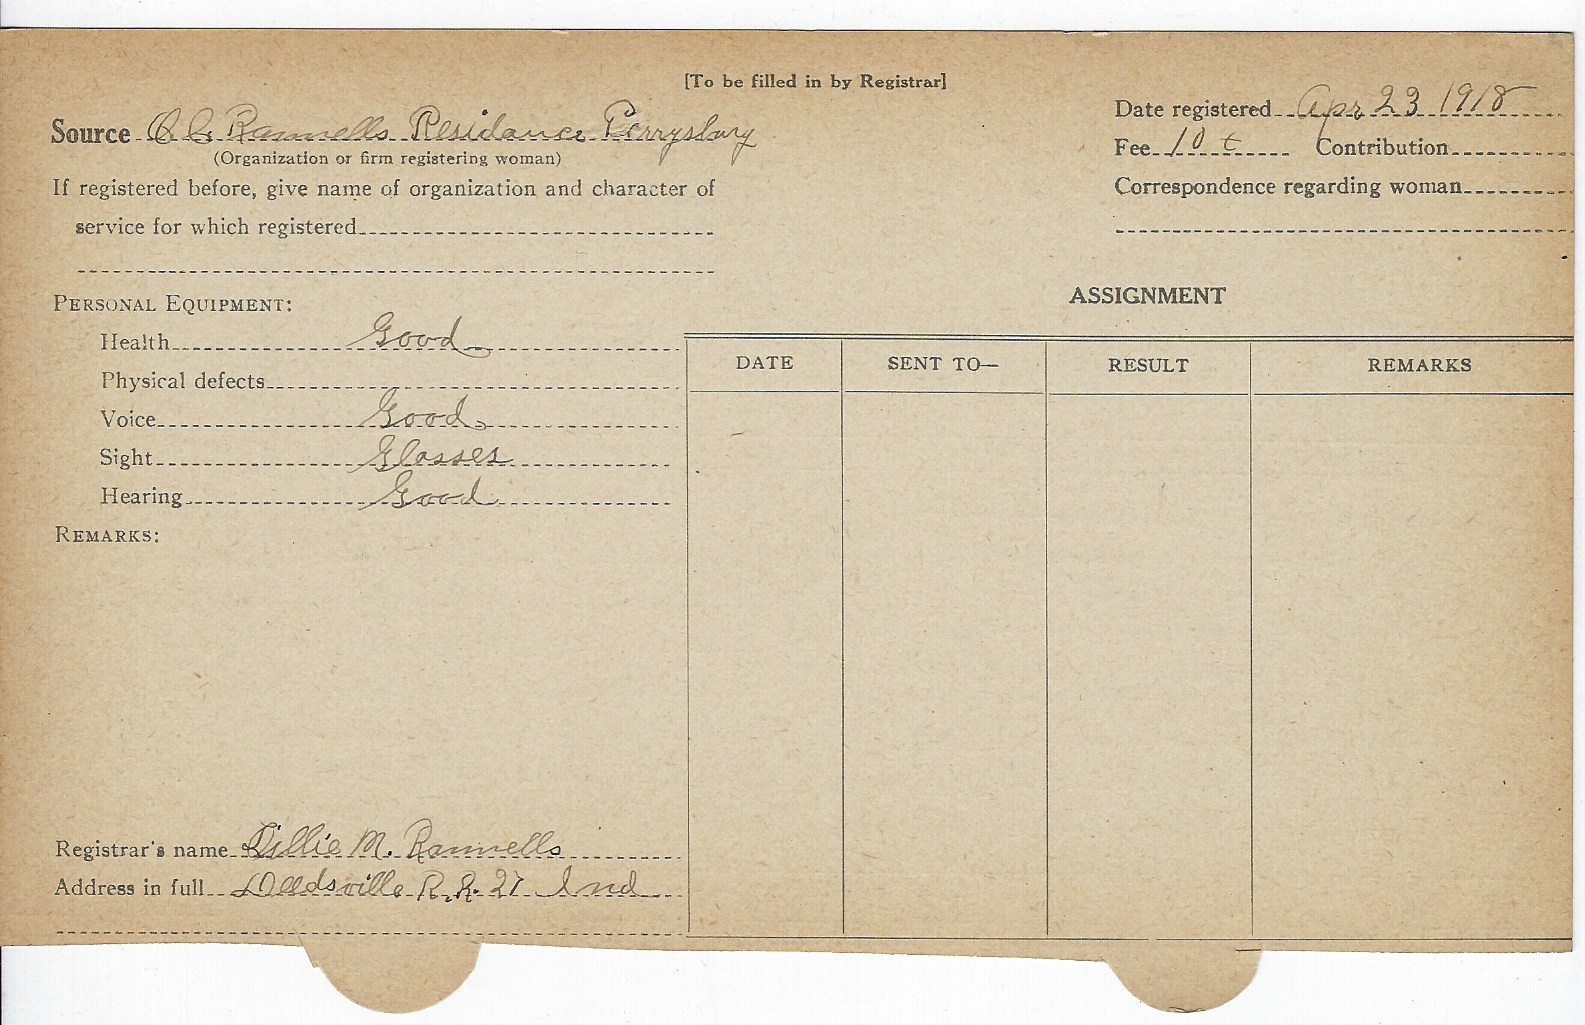 [To be filled in by Registrar]
Date registered Apr 23 1918
Source O C Rannells Residance Perrysburg
(Organization or firm registering woman)
Fee 10 ¢ Contribution
If registered before, give name of organization and character of
Correspondence regarding woman
service for which registered
ASSIGNMENT
PERSONAL EQUIPMENT:
Health Good
DATE SENT TO— RESULT REMARKS
Physical defects
Voice Good
Sight Glasses
Hearing Good
REMARKS:
Registrar's name Lillie M. Rannells
Address in full Deedsville R.R. 27 Ind